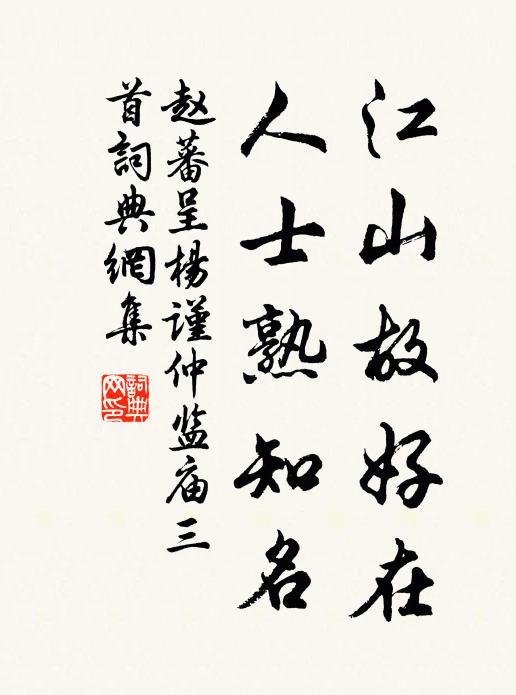 江山故好在
人士熟知名
赵蕃呈楊謹仲监庙三
首詞典網集
詞典网印